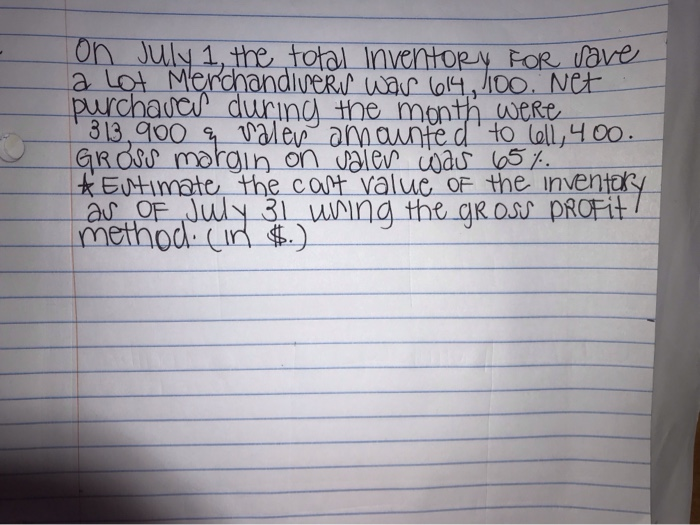 On July 1, the total Inventory FOR save
a lot Merchandisers was 614,100. Net
purchases during the month were
313,900 & sales amounted to 611,400.
GROSS margin on sales was 65%.
* Estimate the cost value OF the inventory
as OF July 31 using the gROSS PROFit
method. (in $.)